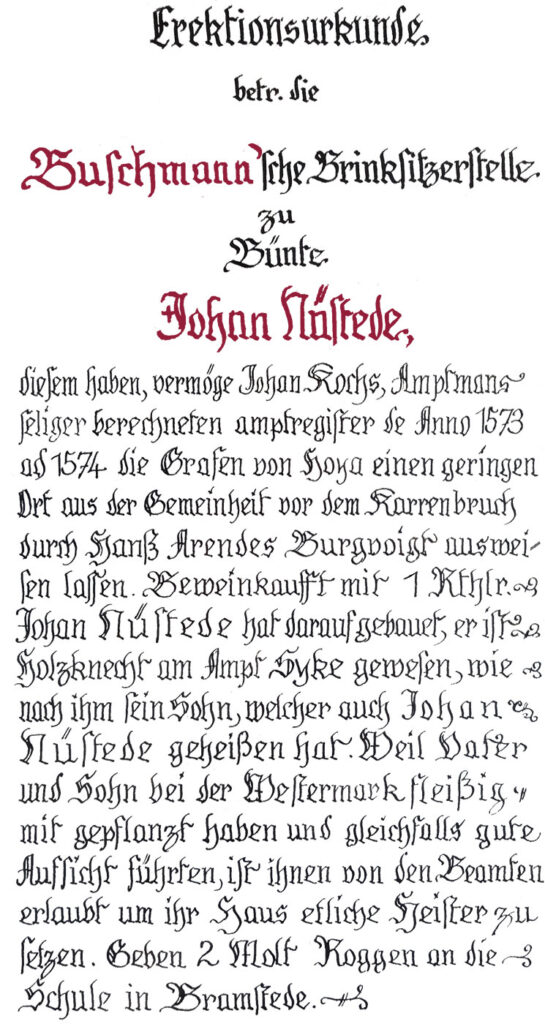 Erektionsurkunde.
betr. die
Buschmann'sche Brinksitzerstelle.
zu
Bünte.
Johan Nüstede,
diesem haben, vermöge Johan Kochs, Amptmans
seliger berechneten amptregister de Anno 1573
ad 1574 die Grafen von Hoya einen geringen
Ort aus der Gemeinheit vor dem Karrenbruch
durch Hanß Arendes Burgvoigt auswei-
sen lassen. Beweinkaufft mit 1 Rthlr.
Johan Nüstede hat darauf gebauet, er ist
Holzknecht am Ampt Syke gewesen, wie
nach ihm sein Sohn, welcher auch Johan
Nüstede geheißen hat. Weil Vater
und Sohn bei der Westermark fleißig
mit gepflanzt haben und gleichfalls gute
Aufsicht führten, ist ihnen von den Beamten
erlaubt um ihr Haus etliche Heister zu
setzen. Geben 2 Molt Roggen an die
Schule in Bramstede.